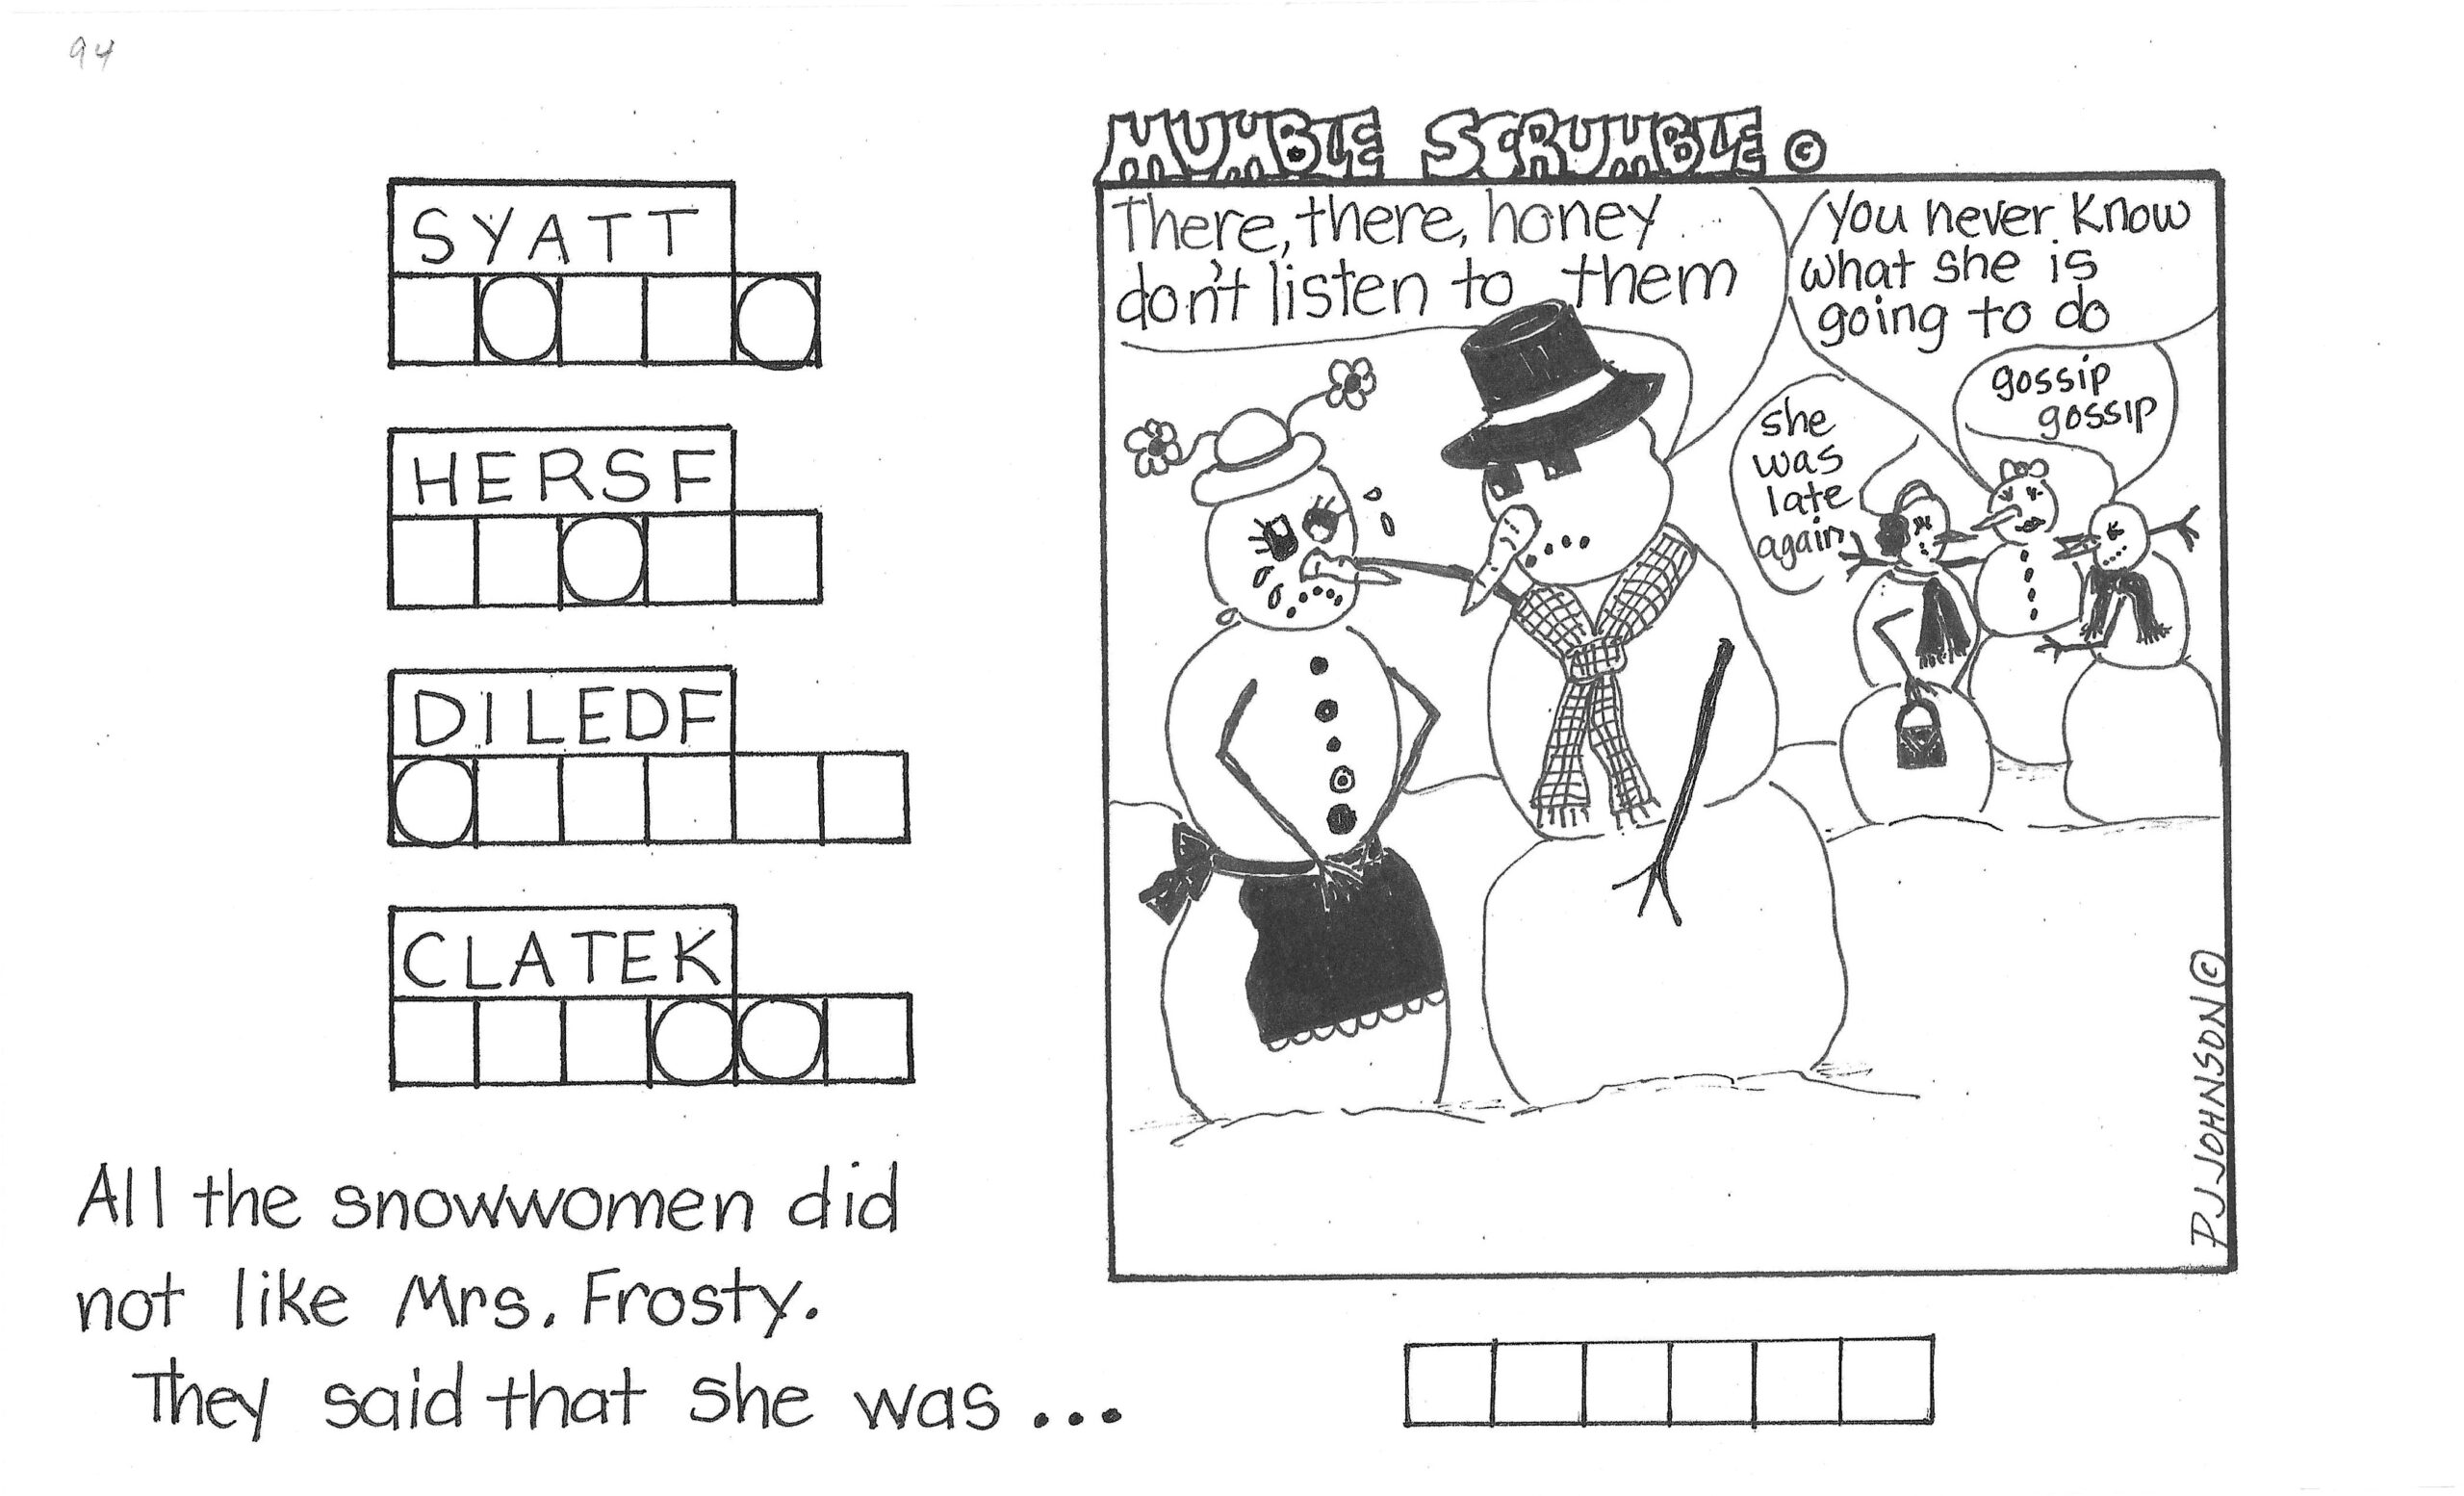 94
MUMBLE SCRUMBLE ©
SYATT
HERSF
DILEDF
CLATEK
There, there, honey
don't listen to them
You never know
what she is
going to do
gossip
gossip
she
was
late
again
PJ JOHNSON ©
All the snowwomen did
not like Mrs. Frosty.
They said that she was...